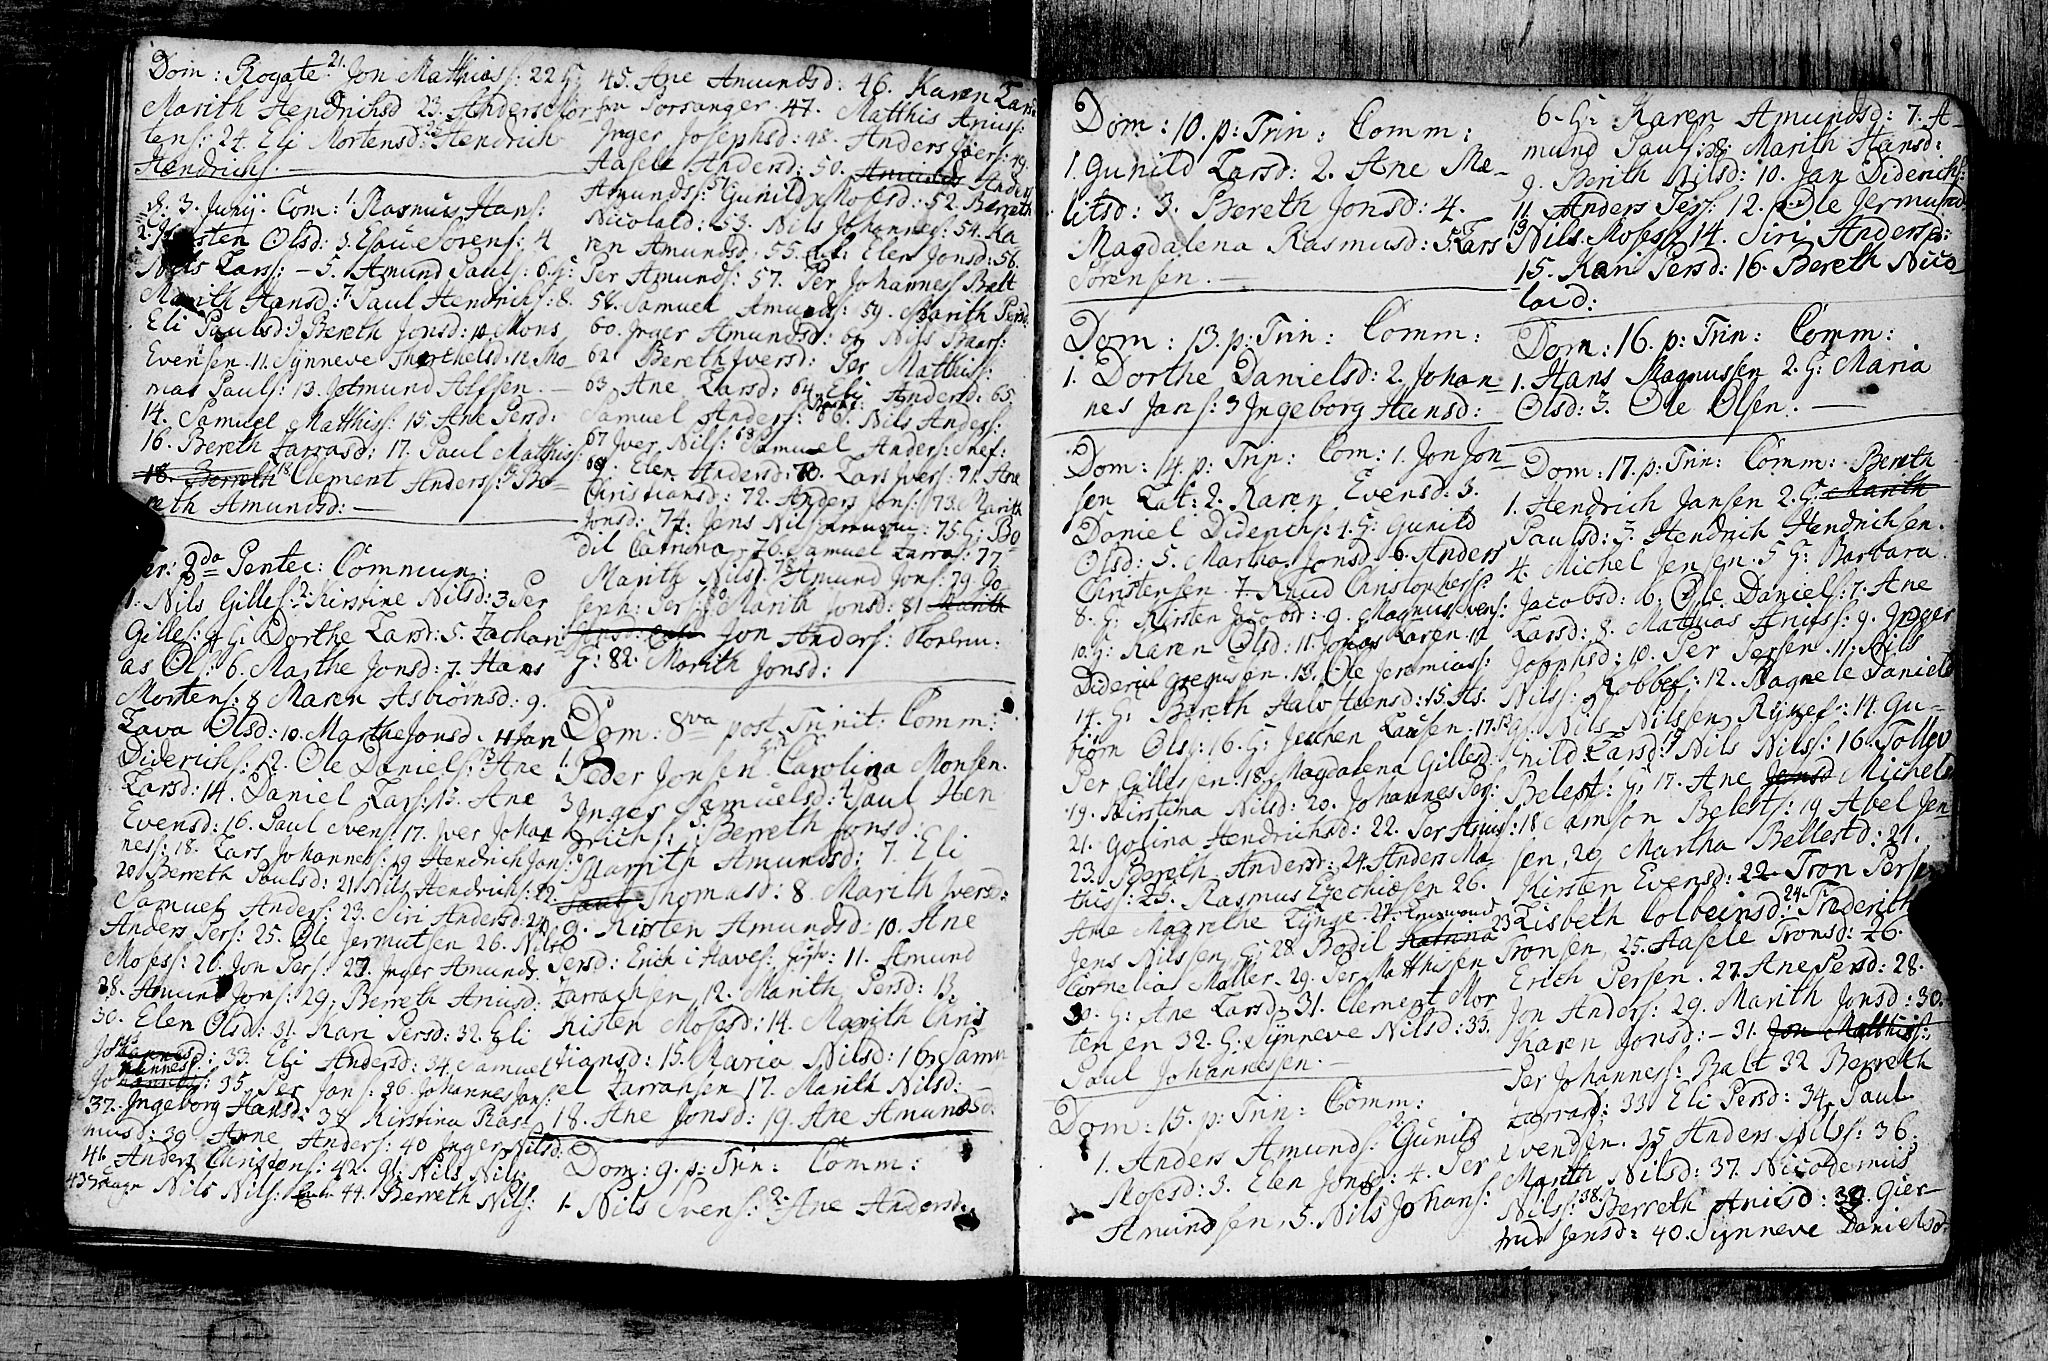 Dom: Rogate. 21. Jon Mathias: 22 G:
Marith Hendrichsd 23. Anders Mor
tens: 24. Eli Mortensd: Hendrich
Hendrichs. —
d: 3. Junij. Com: 1. Rasmus Hans:
2. Kirsten Olsd: 3. Esau Sörens: 4
Nils Lars: – 5. Amund Pauls: 6. G:
Marith Hansd: 7. Paul Hendrichs: 8.
Eli Paulsd: 9 Bereth Jonsd: 10. Mons
Evensen. 11. Synneve 12. Tho-
mas Pauls: 13. Jermund
14. Samuel Matthis: 15. Ane Persd:
16. Bereth Larrasd: 17. Paul Mathis:
18. Berreth 18 Clement Anders: 19 Be-
reth Amundsd: —
Fer: 2da Pentec: Commun:
1. Nils Gilles: 2. Kirstine Nilsd: 3. Per
Gilles: 4 G: Dorthe Larsd: 5. Zachari
as Ols: 6. Marthe Jonsd: 7. Hans
Mortens: 8 Maren Asbiörnsd: 9.
Lava Olsd: 10. Marthe Jonsd. 11 Jan
Diderichs: 12. Ole Daniels: 13 Ane
Larsd: 14. Daniel Lars: 15. Ane
Evensd: 16. Paul Evens: 17. Iver Johan
nes: 18. Lars Johannes: 19 Hendrich Jans:
20. Berreth Paulsd: 21. Nils Hendrichs: 22.
Samuel Anders: 23. Siri Andersd: 24
Anders Pers: 25. Ole Jermutsen 26. Nils
Moses: 26. Jon Pers: 27. Inger Amunds.
28. Amund Jons: 29. Berreth Ariusd:
30. Elen Olsd: 31. Kari Persd: 32. Eli
Johannesd: 33. Eli Andersd: 34. Samuel
Johannes: 35. Per Jans: 36 Johannes Jans:
37. Ingeborg Hansd: 38 Kirstina Ras-
musd: 39 Arne Anders: 40 Inger Nilsd:
41. Anders Christens: 42. G: Nils Nils:
43 Nils Nils: 44. Berreth Nils:
45. Ane Amundsd: 46. Karen Lars
fra Porsanger. 47. Matthis Arius:
Inger Josephsd: 48. Anders Ivers: 49.
Aasele Andersd: 50. Amunds Anders
Amunds: 51. Gunild Mosesd: 52. Berreth
Nicolaid: 53. Nils Johannes: 54. Ka
ren Amundsd: 55. Elen Jonsd: 56.
Per Amunds: 57. Per Johannes Balt
58. Samuel Amunds: 59. Marith Persd.
60. Inger Amundsd: 61 Nils Baars:
62. Bereth Iversd: Per Mathis:
63. Ane Larsd: 64. Eli Andersd: 65
Samuel Anders: 66. Nils Anders:
67 Iver Nils: 68 Samuel Anders:
69. Elen Andersd: 70. Lars Ivers: 71. Ane
Christiansd: 72. Anders Jons: 73. Marith
Jonsd: 74. Jens Nils: 75. G: Bo
dil Catrina 76. Samuel Larras: 77
Marith Nils: 78 Amund Jons: 79. Jo
seph: Pers: 80 Marith Jonsd: 81 Marith
Jon Anders:
G: 82. Marith Jonsd:
Dom: 8va post Trinit: Comm:
1. Peder Jonsen 2. Carolina Monsen.
3 Inger Samuelsd: 4 Paul Hen
drichs: 5. Berreth Jonsd:
6 Marrith Amundsd: 7. Eli
Pauls Thomasd: 8 Marith Iversd:
9. Kirsten Amundsd: 10. Ane
Persd: Erich i Haves: 11. Amund
Larrachsen 12. Marith Persd: 13
Kisten Mosesd: 14. Marith Chris
tiansd: 15. Maria Nilsd: 16. Samu
el Larransen 17. Marith Nilsd: —
18. Ane Jonsd: 19. Ane Amundsd:
Dom: 9. p: Trin: Comm:
1. Nils Svens: 2. Ane Andersd:
Dom: 10. p: Trin: Comm:
1. Gunild Larsd: 2. Ane Me-
litsd: 3. Bereth Jonsd: 4.
Magdalena Rasmusd: 5. Lars
Sörensen. —
Dom: 13. p: Trin: Comm:
1. Dorthe Danielsd: 2. Johan
nes Jans: 3 Ingeborg Hansd:
Dom: 14. p: Trin: Com: 1. Jon Jon
sen Lat: 2. Karen Evensd: 3.
Daniel Diderichs: 4. G: Gunild
Olsd: 5. Martha Jonsd: 6. Anders
Christensen. 7. Knud Christophers:
8. G: Kirsten Jacobsd: 9. Magnus Evens:
10. G: Karen Olsd: 11. Jonas Laren. 12
Diderich Gregusen. 13. Ole Jeremias:
14. G: Bereth Halvorsd: 15. As-
biörn Ols: 16. G: Jechen Lausen: 17.
Per Gillessen. 18. Magdalena Gillesd:
19. Kirstina Nilsd: 20. Johannes Pers:
21. Golina Hendrichsd: 22. Per Amus:
23. Bereth Andersd: 24. Anders Ma-
this: 25. Rasmus Ezechiasen 26.
Ane Magrethe Lynge. 27.
Jens Nilssen G: 28. Bodil Katrina
Cornelia Moller. 29. Per Matthissen
30. G: Ane Larsd: 31. Clement Mor
ten en 32. G: Synneve Nilsd: 33.
Paul Johannesen. —
Dom: 15. p: Trin: Comm:
1. Anders Amunds: 2. Gunild
Mosesd: 3. Elen Jonsd: 4. Per
Amundsen. 5. Nils Johans:
6. G: Karen Amundsd: 7. A-
mund Pauls: 8: Marith Hansd:
9. Berith Nilsd: 10. Jan Diderichs:
11 Anders Pers: 12. Ole Jermunds
13 Nils. Moses: 14. Siri Andersd:
15. Kari Persd: 16. Bereth Nico-
laid:
Dom: 16. p: Trin: Comm:
1. Hans Magnussen 2. G: Maria
Olsd: 3. Ole Olsen. —
Dom: 17. p: Trin: Comm: Bereth
1. Hendrich Jansen 2. G: Marith
Paulsd: 3. Hendrich Hendrichsen.
4. Michel Jensen. 5 G: Barbara
Jacobsd: 6. Ole Daniels: 7. Ane
Larsd: 8. Mathias Arius: 9. Inger
Josephsd: 10. Per Persen. 11. Nils
Nils: 12. Magnele Daniels
13 Nils Nilssen 14. Gu-
nild Larsd: 15 Nils Nils: 16. Tollev
Belest: G: 17. Ane Jensd Michels
18 Samson Belest: 19 Abel Jen
sen. 20 Martha Bellestd: 21.
Kirsten Evensd: 22. Tron Pers
23 Lisbeth Colbeinsd: 24. Friderich
Tronsen, 25. Aasele Tronsd: 26.
Erich Persen. 27. Ane Persd: 28.
Jon Anders: 29. Marith Jonsd: 30.
Karen Jonsd: – 31. Jon Matthis:
Per Johannes: Balt 32 Berreth
Larrasd: 33. Eli Persd: 34. Paul
Evendsen. 35 Anders Nils: 36.
Marith Nilsd: 37. Nicodemus
Nils: 38. Berreth Ariusd: 39. Gier-
trud Jensd: 40. Synneve Danielsd: